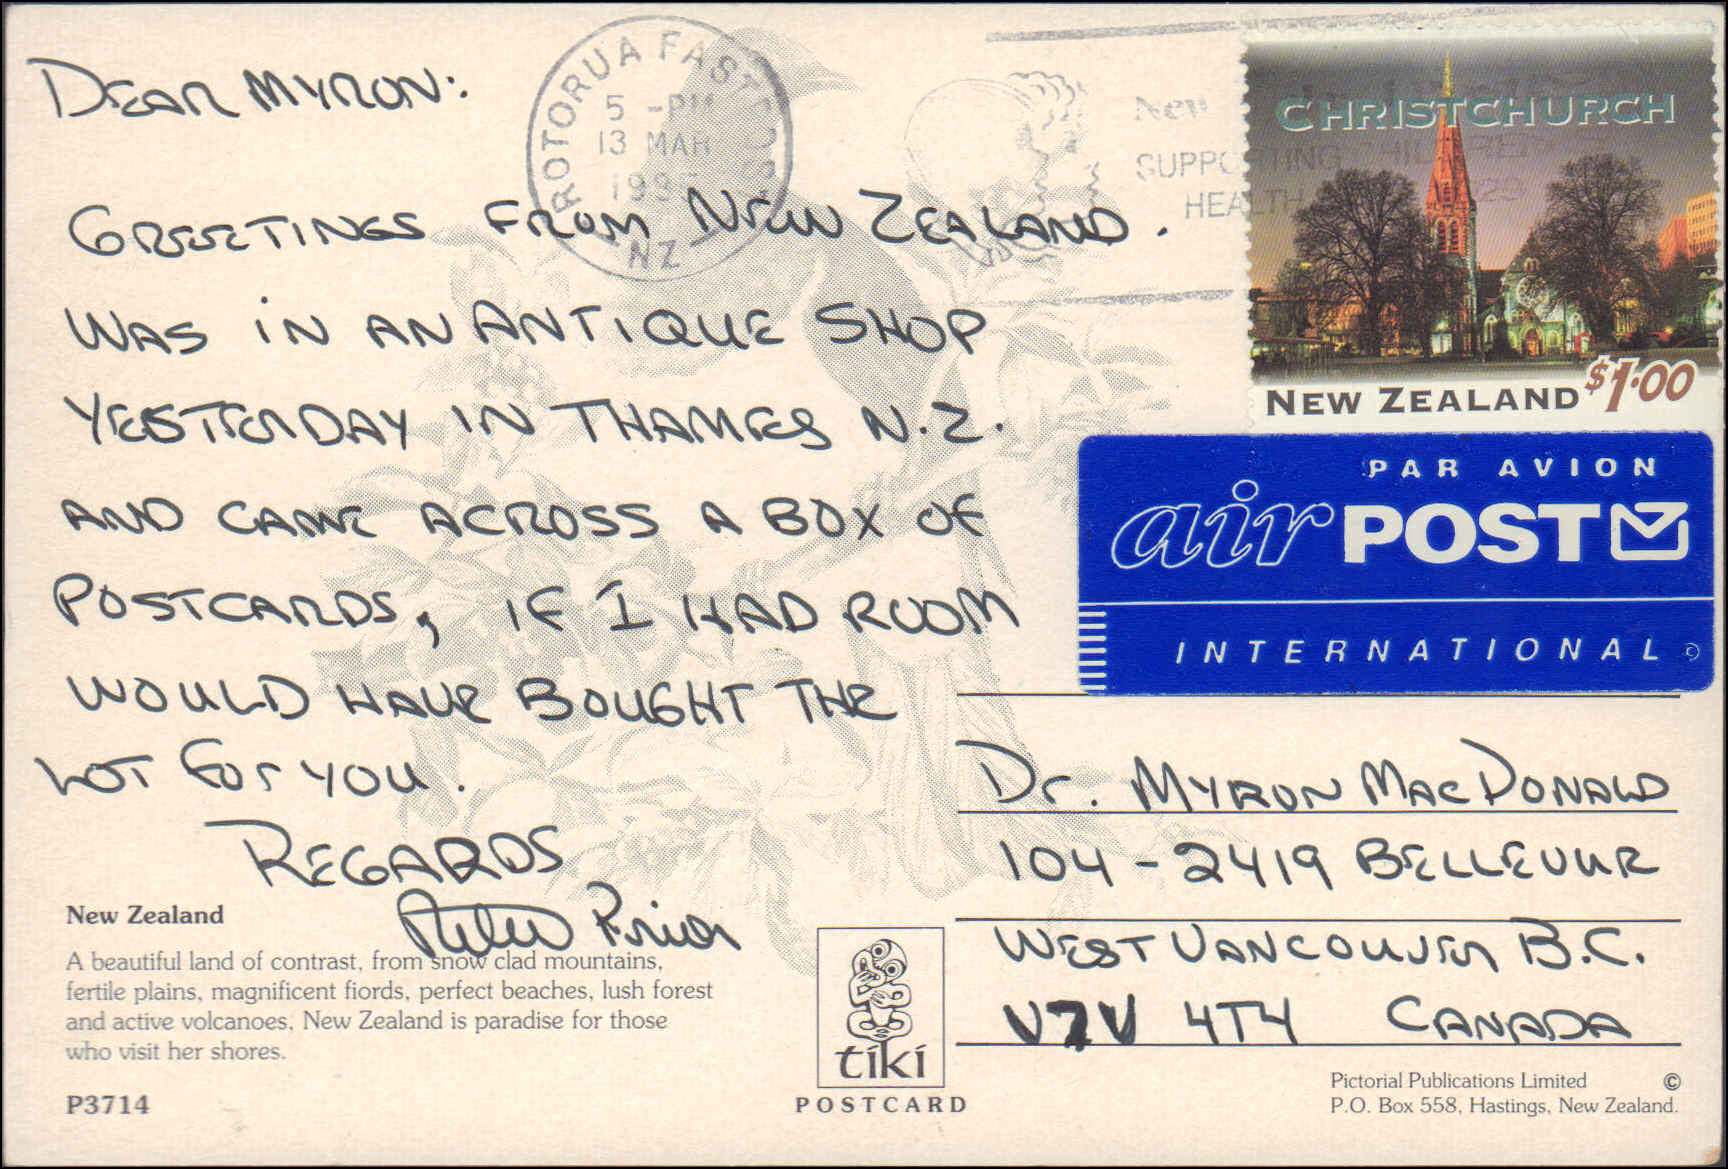 DEAR MYRON:
GREETINGS FROM NEW ZEALAND.
WAS IN AN ANTIQUE SHOP
YESTERDAY IN THAMES N.Z.
AND CAME ACROSS A BOX OF
POSTCARDS, IF I HAD ROOM
WOULD HAVE BOUGHT THE
LOT FOR YOU.
REGARDS
Peter Prior
New Zealand
A beautiful land of contrast, from snow clad mountains,
fertile plains, magnificent fiords, perfect beaches, lush forest
and active volcanoes, New Zealand is paradise for those
who visit her shores.
P3714
ROTORUA FAST
5 -PM
13 MAR
NZ
New
SUPPORTING CHILDREN'S
HEALTH
CHRISTCHURCH
NEW ZEALAND $1.00
PAR AVION
air POST
INTERNATIONAL ©
Dr. MYRON MACDONALD
104 - 2419 BELLEVUE
WEST VANCOUVER B.C.
V7V 4T4 CANADA
tiki
POSTCARD
Pictorial Publications Limited ©
P.O. Box 558, Hastings, New Zealand.